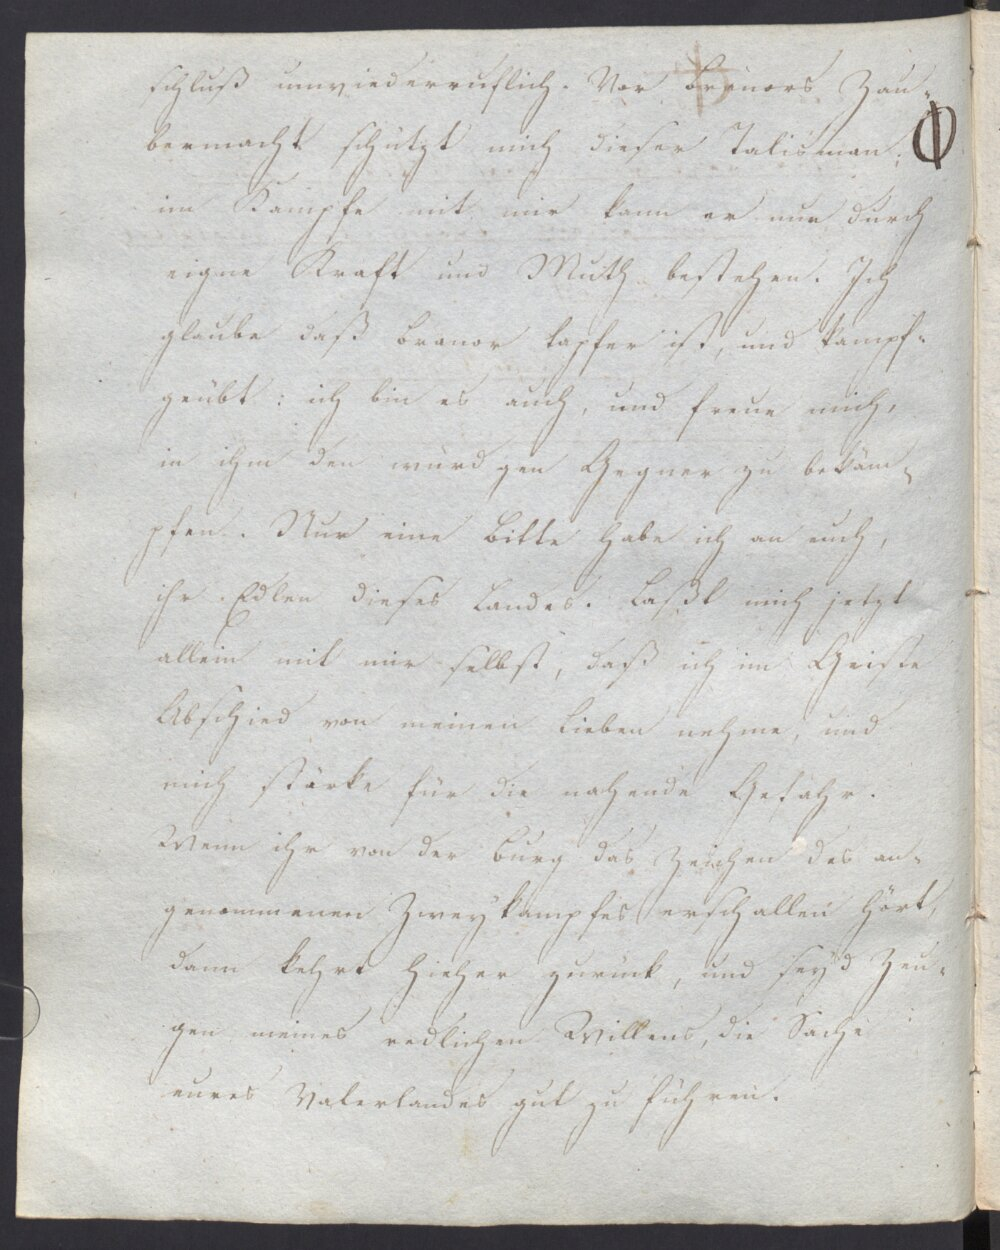 schluß unwiederruflich. Vor Branors Zau-
bermacht schützt mich dieser Talisman; Φ
im Kampfe mit mir kann er nur durch
eigne Kraft und Muth bestehen. Ich
glaube daß Branor tapfer ist, und kampf-
geübt: ich bin es auch, und freue mich,
in ihm den würdgen Gegner zu bekäm-
pfen. Nur eine Bitte habe ich an euch,
ihr Edlen dieses Landes. Laßt mich jetzt
allein mit mir selbst, daß ich im Geiste
Abschied von meinen Lieben nehme, und
mich stärke für die nahende Gefahr.
Wenn ihr von der Burg das Zeichen des an-
genommenen Zweykampfes erschallen hört,
dann kehrt hieher zurück, und seyd Zeu-
gen meines redlichen Willens, die Sache
eures Vaterlandes gut zu führen.